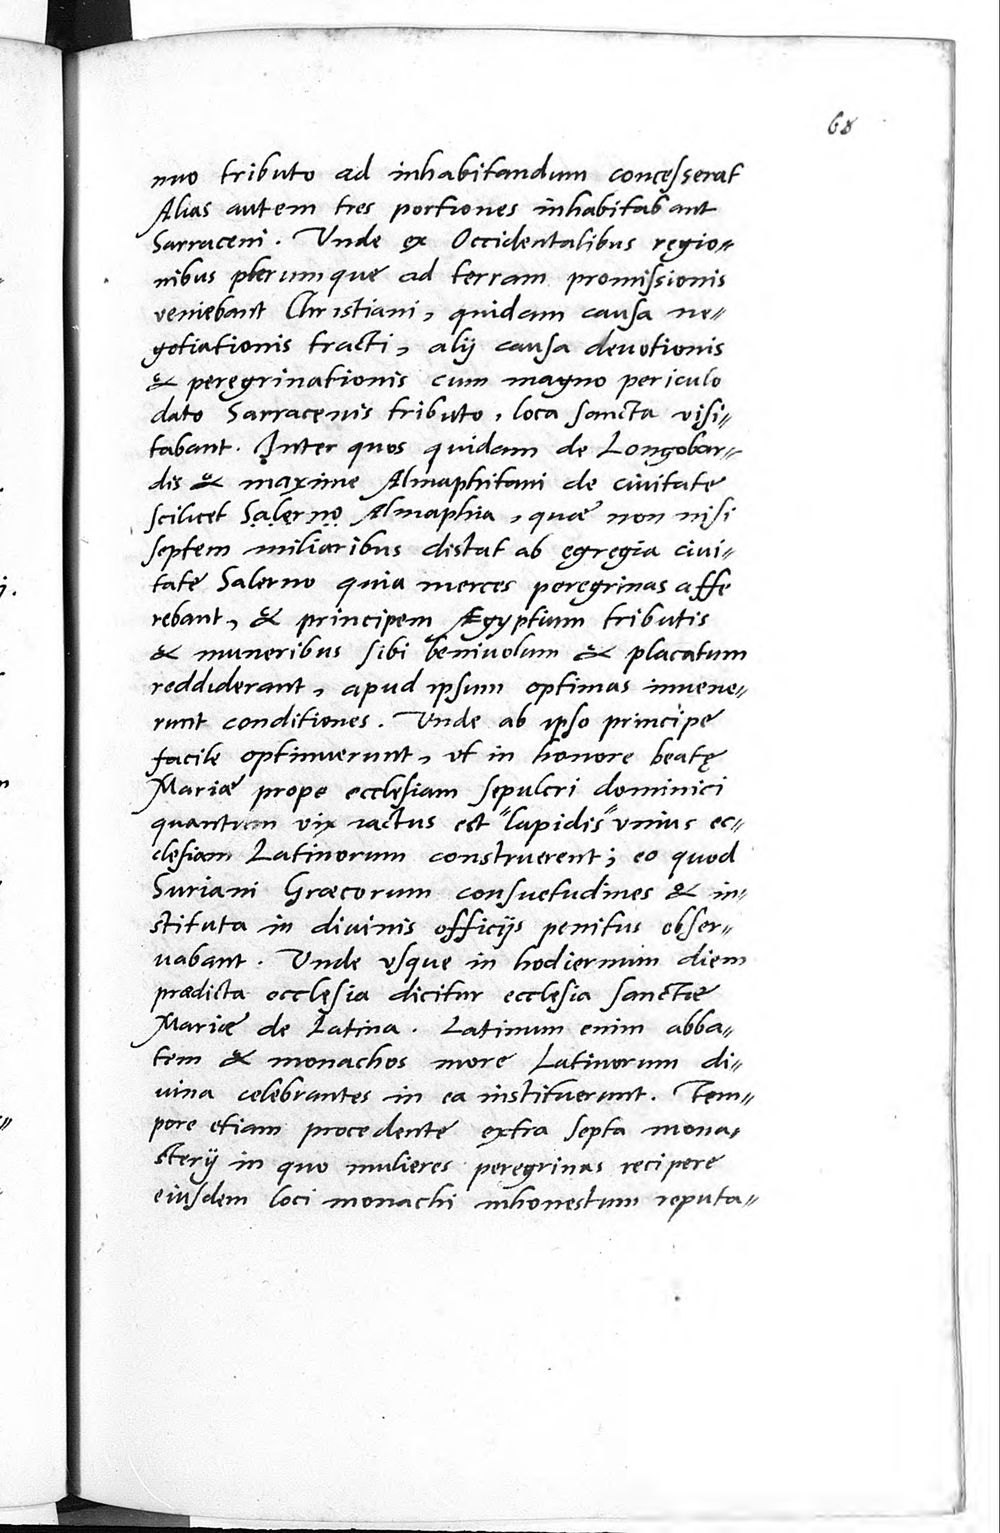 68
nuo tributo ad inhabitandum concesserat
Alias autem tres portiones inhabitabant
Sarraceni. Vnde ex Occidentalibus regio„
nibus plerumque ad terram promissionis
veniebant Christiani, quidam causa ne„
gotiationis tracti, alij causa deuotionis
& peregrinationis cum magno periculo
dato Sarracenis tributo, loca sancta visi„
tabant. Inter quos quidam de Longobar„
dis & maxime Almaphitani de ciuitate
scilicet Salerno Almaphia, quæ non nisi
septem miliaribus distat ab egregia ciui„
tate Salerno quia merces peregrinas affe
rebant, & principem Ægyptium tributis
& muneribus sibi beniuolum & placatum
reddiderant, apud ipsum optimas inuene„
runt conditiones. Vnde ab ipso principe
facile optinuerunt, vt in honore beatę
Mariæ prope ecclesiam sepulcri dominici
quantum vix iactus est "lapidis" vnius ec„
clesiam Latinorum construerent; eo quod
Suriani Græcorum consuetudines & in„
stituta in diuinis officijs penitus obser„
uabant. Vnde vsque in hodiernum diem
prædicta ecclesia dicitur ecclesia sanctæ
Mariæ de Latina. Latinum enim abba„
tem & monachos more Latinorum di„
uina celebrantes in ea instituerunt. Tem„
pore etiam procedente extra septa mona„
sterij in quo mulieres peregrinas recipere
eiusdem loci monachi inhonestum reputa„